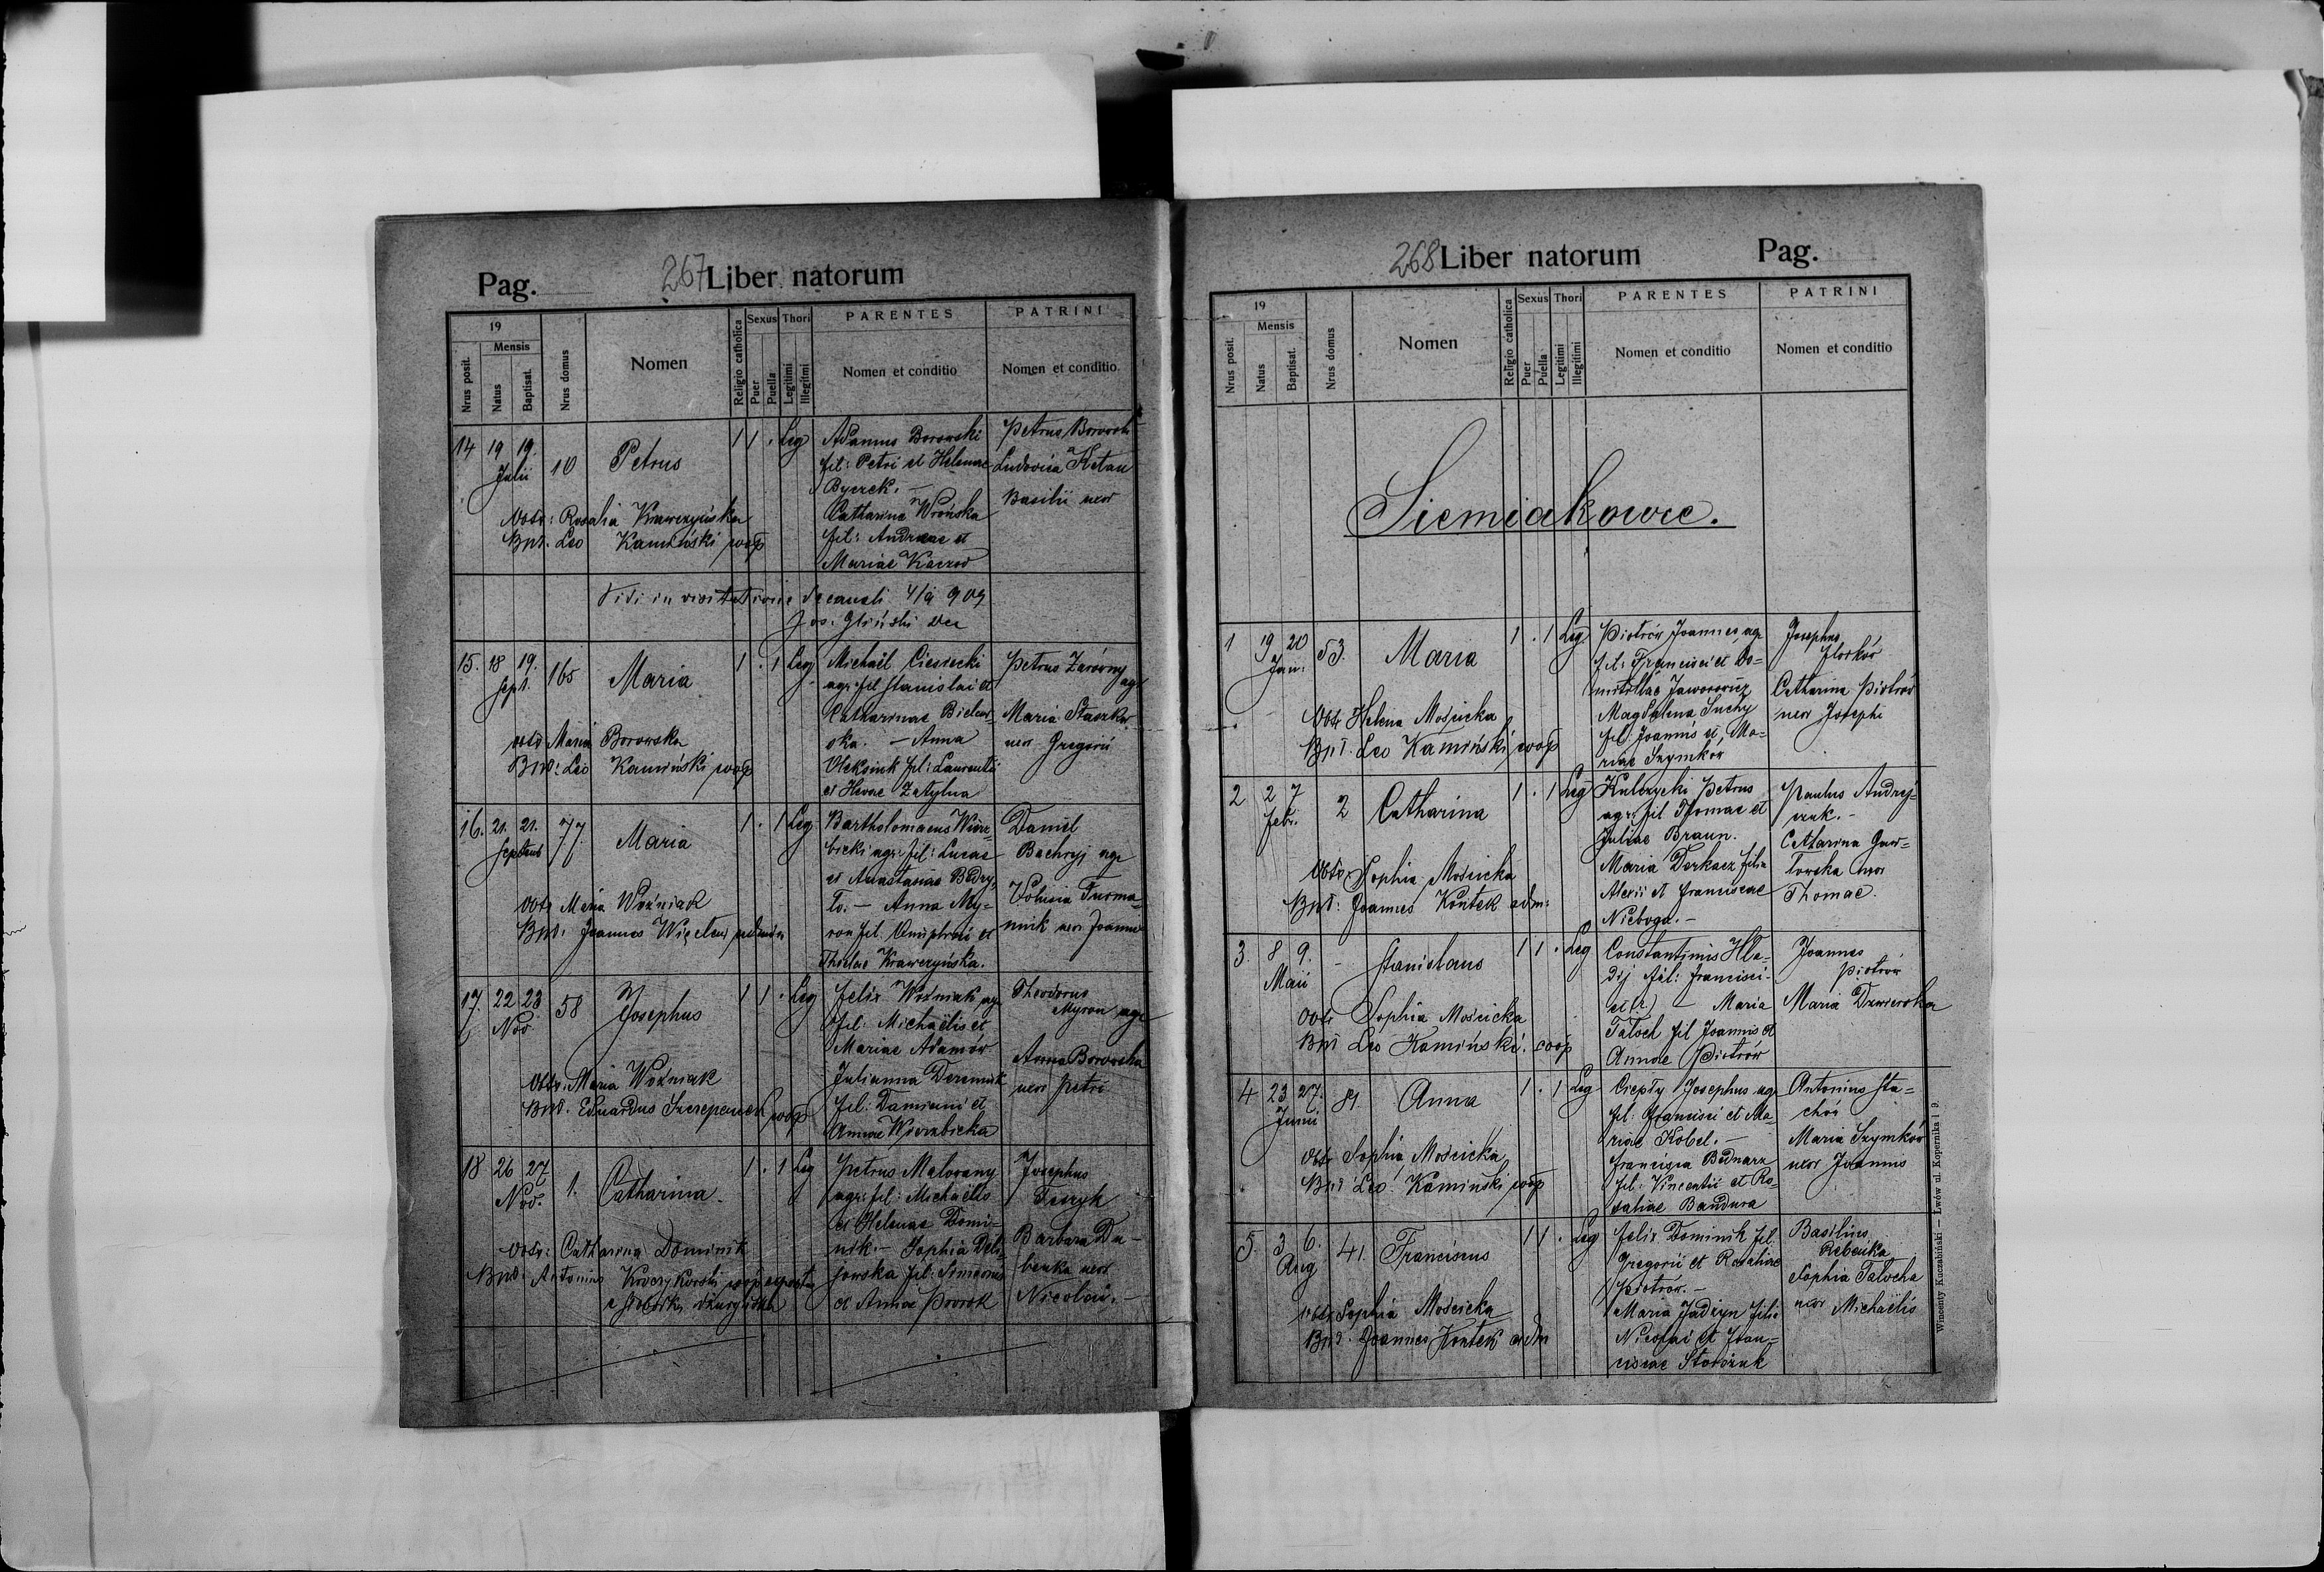 Pag. 267 Liber natorum
19
Mensis
Nrus posit.
Natus
Baptisat.
Nrus domus
Nomen
Religio catholica
Sexus
Puer
Puella
Thori
Legitimi
Illegitimi
PARENTES
Nomen et conditio
PATRINI
Nomen et conditio
14 19 19. Julii 10 Petrus 1 1 . Leg
Obstr: Rosalia Krawczyńska
Bapt. Leo Kamiński coop
Adamus Borowski
fil: Petri et Helenae
Byczek. –
Catharina Wrońska
fil: Andreae et
Mariae
Petrus Borowski
Ludovica
Basilii uxor
Vidi in visitatione decanali 909
Jos. Gliński Dec
15. 18 19. Sept. 165 Maria 1 . 1 Leg
obstr Maria Borowska
Bapt: Leo Kamiński coop
Michaël Ciesiecki
agr: fil Stanislai et
Catharinae Bielaw-
ska. – Anna
Oleksiuk fil: Laurentii
et
Petrus Zarówny
agr
Maria
uxor Gregorii
16. 21. 21. Septemb 77. Maria 1 . 1 Leg
Obstr Maria Woźniak
Bapt. Joannes
Bartholomaeus Wierz-
bicki agr. fil: Lucae
et Anastasiae Bedry
ło. – Anna My-
ron fil. Onuphrii et
Theclae Krawczyńska.
Daniel
Bachryj agr
Furma-
niuk uxor Joannis
17. 22 23 Nov 58 Josephus 1 1 . Leg
Obstr. Maria Woźniak
Bapt. Eduardus coop
Felix Woźniak agr
fil. Michaëlis et
Mariae Adamów
Julianna
fil: Damiani et
Annae Wierzbicka
Theodorus
Myron agr
Anna Borowska
uxor Petri
18 26 27 Nov. 1. Catharina. 1 . 1 Leg
obstr: Catharina Dominik
Bapt. Antonius coop
Petrus Malorany
agr. fil: Michaëlis
et Helenae Domi-
nik. – Sophia
fil: Simeonis
et Annae Prorok
Josephus
Barbara Du-
benka uxor
Nicolai. –
268 Liber natorum Pag.
19
Mensis
Nrus posit.
Natus
Baptisat.
Nrus domus
Nomen
Religio catholica
Sexus
Puer
Puella
Thori
Legitimi
Illegitimi
PARENTES
Nomen et conditio
PATRINI
Nomen et conditio
Siemiakowce.
1 19 20 Jan: 53. Maria 1 . 1 Leg
Obstr Helena Mościcka
Bapt. Leo Kamiński coop
Piotrów Joannes agr
fil: Francisci et Do-
mitillae Jaworowicz
Magdalena Suchy
fil. Joannis et Ma-
riae Szymków
Josephus
Florków
Catharina Piotrów
uxor Josephi
2 2 7 Febr. 2 Catharina 1 . 1 Leg
Obstr Sophia Mościcka
Bapt: Joannes Kontek adm:
Kulczycki Petrus
agr. fil Thomae et
Juliae Braun.
Maria Derkacz filia
Alexii et Franciscae
Nieboga. –
Paulus Andrej-
czuk. –
Catharina Gaw-
łowska uxor
Thomae.
3. 8 9. Maii – Stanislaus 1 1 . Leg
Obstr Sophia Mościcka
Bapt Leo Kamiński. coop
Constantinus Hła-
dij fil: Francisci
et (?) – Maria
Tatoch fil Joannis et
Annae Piotrów
Joannes
Piotrów
Maria
4 23 27. Junii 81. Anna 1 . 1 Leg
Obstr Sophia Mościcka
Bapt Leo Kamiński coop
Ciepły Josephus agr
fil. Francisci et Ma-
riae Kobel. –
Francisca Bednarz
fil. Vincentii et Ro-
saliae Bandura
Antonius Sta-
chów
Maria Szymków
uxor Joannis
5. 3 6. Aug 41 Franciscus 1 1 . Leg
obstr Sophia Mościcka
Bapt. Joannes Kontek adm
Felix Dominik fil.
Gregorii et Rosaliae
Piotrów. –
Maria Jadzyn filia
Nicolai et Fran-
ciscae
Basilius
Rebenka
Sophia Tatocha
uxor Michaëlis
Wincenty Kuczabiński — Lwów ul. Kopernika l 9.